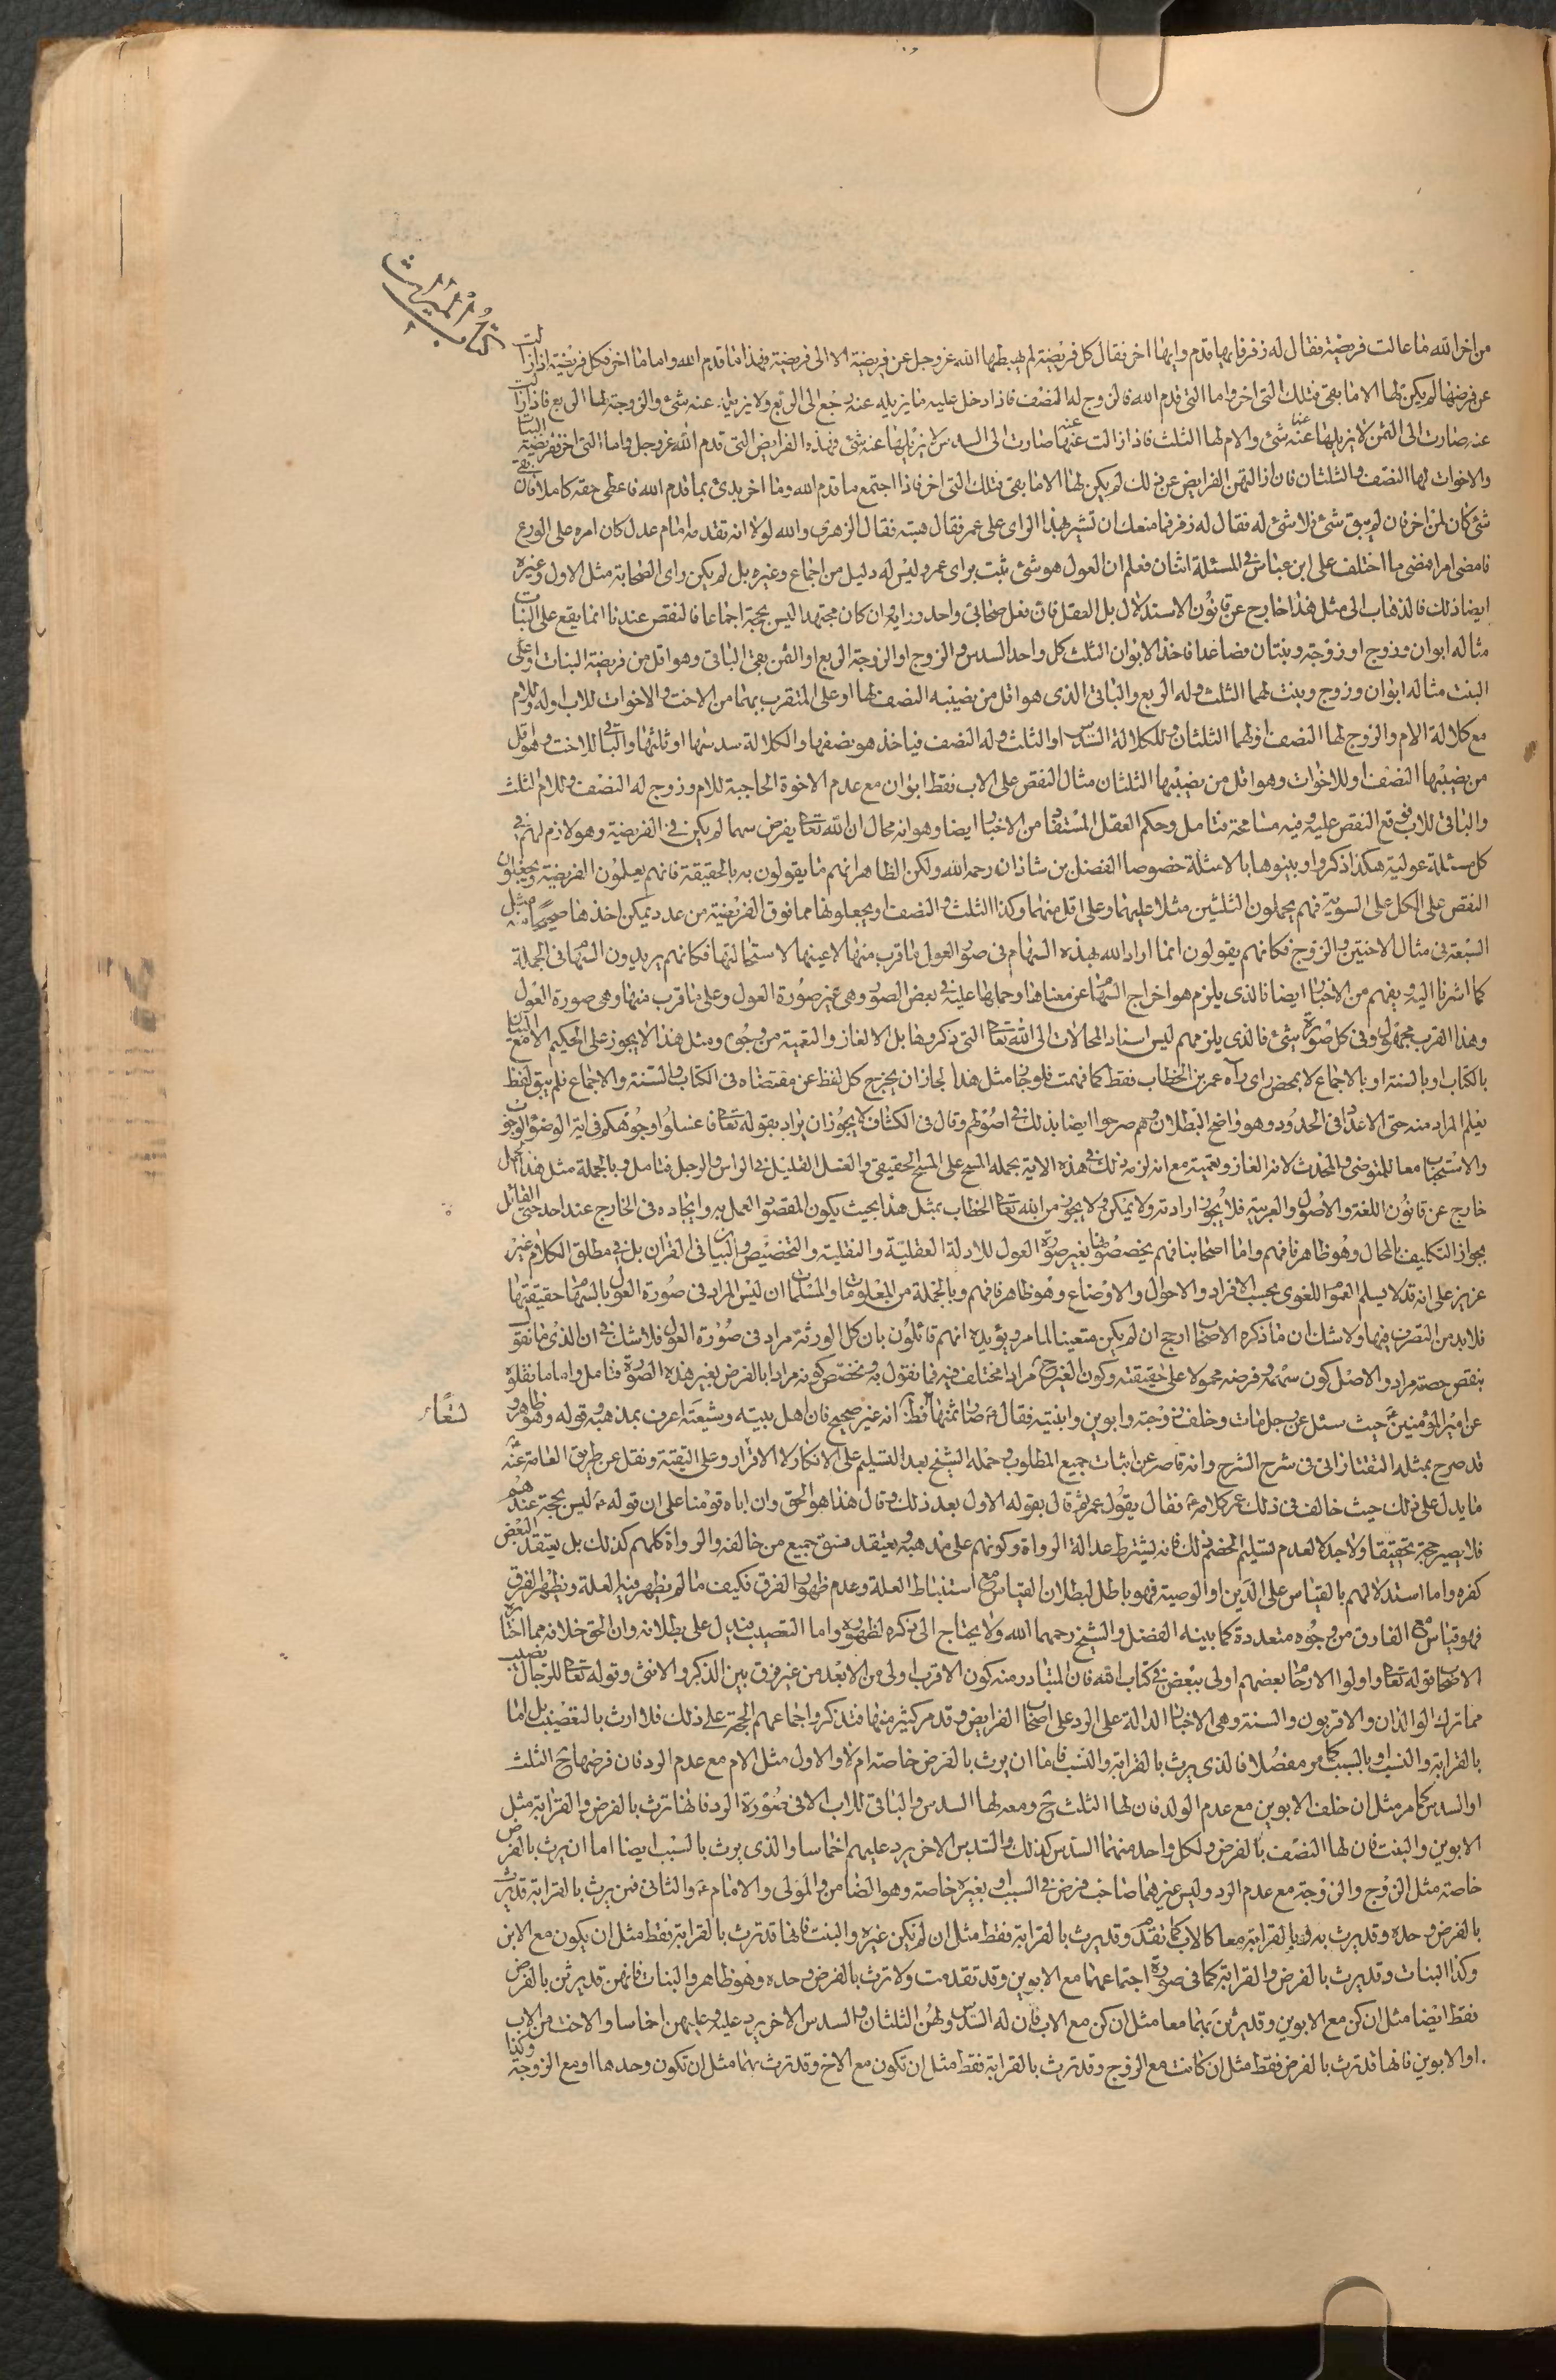 كتاب الميراث
من اخر الله ما عالت فريضة فقال له زفر فايها قدم وايها اخر فقال كل فريضة لم يهبطها الله عز وجل عن فريضة الا الى فريضة فهذا ما قدم الله واما ما اخر فكل فريضة اذا زالت
عن فرضها لم يكن لها الا ما بقى فتلك التى اخر واما التى قدم الله فالزوج له النصف فاذا دخل عليه ما يزيله عنه رجع الى الربع ولا يزيله عنه شئ والزوجة لها الربع فاذا زالت
عنه صارت الى الثمن لا يزيلها عنه شئ والام لها الثلث فاذا زالت عنها صارت الى السدس لا يزيلها عنه شئ فهذه الفرايض التى قدم الله عز وجل واما التى اخر ففريضة البنات
والاخوات لها النصف والثلثان فان ازالتهن الفرايض عن ذلك لم يكن لها الا ما بقى فتلك التى اخر فاذا اجتمع ما قدم الله وما اخر بدئ بما قدم الله فاعطى حقه كاملا فان بقى
شئ كان لمن اخر فان لم يبق شئ فلا شئ له فقال له زفر فما منعك ان تشير بهذا الراى على عمر فقال هيبته فقال الزهرى والله لولا انه تقدمه امام عدل كان امره على الورع
فامضى امرا فمضى ما اختلف على ابن عباس فى المسئلة اثنان فعلم ان العول هو شئ ثبت براى عمر وليس له دليل من اجماع وغيره بل لم يكن راى الصحابة مثل الاول وغيره
ايضا ذلك فالذهاب الى مثل هذا خارج عن قانون الاستدلال بل العقل فان فعل صحابى واحد ورايه وان كان مجتهدا ليس بحجة اجماعا فالنقص عندنا انما يقع على البنات
مثاله ابوان وزوج او زوجة وبنتان فصاعدا فاخذ الابوان الثلث كل واحد السدس والزوج او الزوجة الربع او الثمن بقى الباقى وهو اقل من فريضة البنات او على
البنت مثاله ابوان وزوج وبنت لهما الثلث وله الربع والباقى الذى هو اقل من نصيبه النصف لها او على المتقرب بهما من الاخت والاخوات للاب او له وللام
مع كلالة الام والزوج لها النصف او لهما الثلثان وللكلالة السدس او الثلث وله النصف فياخذ هو نصفها والكلالة سدسها او ثلثها والباقى للاخت وهو اقل
من نصيبها النصف او للاخوات وهو اقل من نصيبها الثلثان مثال النقص على الاب فقط ابوان مع عدم الاخوة الحاجبة للام وزوج له النصف وللام الثلث
والباقى للاب فوقع النقص عليه وفيه مسامحة فتامل وحكم العقل المستفاد من الاخبار ايضا وهو انه محال ان الله تعا يفرض سهما لم يكن فى الفريضة وهو لازم لهم فى
كل مسئلة عولية هكذا ذكروا وبينوها بالامثلة خصوصا الفضل بن شاذان رحمه الله ولكن الظاهر انهم ما يقولون به بالحقيقة فانهم يعيلون الفريضة ويجعلون
النقص على الكل على السوية فهم يحملون الثلثين مثلا عليهما وعلى اقل منهما وكذا الثلث والنصف او يجعلونها مما فوق الفريضة من عدد يمكن اخذها صحيحا منه مثل
السبعة فى مثال الاختين والزوج فكانهم يقولون انما اراد الله بهذه السهام فى صور العول ما قرب منها لا عينها لاستحالتها فكانهم يريدون السهام فى الجملة
كما اشرنا اليه ويفهم من الاخبار ايضا فالذى يلزم هو اخراج السهام عن معناها وحملها عليه فى بعض الصور وهى غير صورة العول وعلى ما قرب منها وهى صورة العول
وهذا القرب مجهول وفى كل صورة شئ فالذى يلزمهم ليس اسناد المحالات الى الله تعا التى ذكروها بل الالغاز والتعمية من وجوه ومثل هذا لا يجوز على الحكيم الا مع البيان
بالكتاب او بالسنة او بالاجماع لا بمحض راى رآه عمر بن الخطاب فقط كما فهمت فلو جاز مثل هذا لجاز ان يخرج كل لفظ عن مقتضاه فى الكتاب والسنة والاجماع فلم يبق لفظ
يعلم المراد منه حتى الاعداد فى الحدود وهو واضح البطلان وهم صرحوا ايضا بذلك فى اصولهم وقال فى الكشاف لا يجوز ان يراد بقوله تعا فاغسلوا وجوهكم فى اية الوضوء الوجوب
والاستحباب معا للمتوضى والمحدث لانه الغاز وتعمية مع انه لزمه ذلك فى هذه الاية بحمله المسح على المسح الحقيقى والغسل القليل فى الراس والرجل فتامل وبالجملة مثل هذا الحمل
خارج عن قانون اللغة والاصول والعربية فلا يجوز ارادته ولا يمكن ولا يجوز من الله تعا الخطاب بمثل هذا بحيث يكون المقصود العمل به وايجاده فى الخارج عند احد حتى القائل
بجواز التكليف بالمحال وهو ظاهر فافهم واما اصحابنا فهم يخصصونها بغير صورة العول للادلة العقلية والنقلية والتخصيص والبيان فى القران بل فى مطلق الكلام غير
عزيز على انه قد لا يسلم العموم اللغوى بحسب الافراد والاحوال والاوضاع وهو ظاهر فافهم وبالجملة من المعلومات والمسلمات ان ليس المراد فى صورة العول بالسهام حقيقتها
فلا بد من التصرف فيها ولا شك ان ما ذكره الاصحاب ارجح ان لم يكن متعينا لما مر ويؤيده انهم قائلون بان كل الورثة مراد فى صورة العول فلا شك فى ان الذى ما نقول
بنقص حصته مراد والاصل كون سهمه وفرضه محمولا على حقيقته وكون الغير ح مرادا مختلف فيه فما نقول به ونخصص كونه مرادا بالفرض بغير هذه الصورة فتامل واما ما نقلوه
عن امير المؤمنين ع حيث سئل عن رجل مات وخلف زوجة وابوين وابنتيه فقال ع صار ثمنها تسعا فظاهر انه غير صحيح فان اهل بيته وشيعته اعرف بمذهبه وقوله وهو ظاهر و
قد صرح بمثله التفتازانى فى شرح الشرح وانه قاصر عن اثبات جميع المطلوب وحمله الشيخ بعد التسليم على الانكار لا الاقرار وعلى التقية ونقل عن طريق العامة عنه ع
ما يدل على ذلك حيث خالف فى ذلك عمر كلامه ع فقال يقول عمر ثم قال بقوله الاول بعد ذلك وقال هذا هو الحق وان اباه قومنا على ان قوله ع ليس بحجة عندهم
فلا يصير حجة تحقيقا ولا جدلا لعدم تسليم الخصم ذلك فانه يشترط عدالة الرواة وكونهم على مذهبه ويعتقد فسق جميع من خالفه والرواة كلهم كذلك بل يعتقد البعض
كفره واما استدلالهم بالقياس على الدين او الوصية فهو باطل لبطلان القياس مع استنباط العلة وعدم ظهور الفرق فكيف ما لم يظهر فيه العلة ويظهر الفرق
فهو قياس مع الفارق من وجوه متعددة كما بينه الفضل والشيخ رحمهما الله ولا يحتاج الى ذكره لظهوره واما التعصيب فدليل على بطلانه وان الحق خلافه مما اختاره
الاصحاب قوله تعا واولوا الارحام بعضهم اولى ببعض فى كتاب الله فان المتبادر منه كون الاقرب اولى من الابعد من غير فرق بين الذكر والانثى وقوله تعا للرجال نصيب
مما ترك الوالدان والاقربون والسنة وهى الاخبار الدالة على الرد على اصحاب الفرايض وقد مر كثير منها فتذكر واجماعهم الحجة على ذلك فلا ارث بالتعصيب بل اما
بالقرابة والنسب او بالسبب كما مر مفصلا فالذى يرث بالقرابة والنسب فاما ان يرث بالفرض خاصة ام لا والاول مثل الام مع عدم الرد فان فرضها ح الثلث
او السدس كما مر مثل ان خلف الابوين مع عدم الولد فان لها الثلث ح ومعه لها السدس والباقى للاب الا فى صورة الرد فانها ترث بالفرض والقرابة مثل
الابوين والبنت فان لها النصف بالفرض ولكل واحد منهما السدس كذلك والسدس الاخر يرد عليهم اخماسا والذى يرث بالسبب ايضا اما ان يرث بالفرض
خاصة مثل الزوج والزوجة مع عدم الرد وليس غيرهما صاحب فرض فى السبب او بغيره خاصة وهو الضامن والمولى والامام ع والثانى فمن يرث بالقرابة قد يرث
بالفرض وحده وقد يرث به وبالقرابة معا كالاب كما تقدم وقد يرث بالقرابة فقط مثل ان لم يكن غيره والبنت فانها قد ترث بالقرابة فقط مثل ان يكون مع الابن
وكذا البنات وقد يرث بالفرض والقرابة كما فى صورة اجتماعهما مع الابوين وقد تقدمت ولا ترث بالفرض وحده وهو ظاهر والبنات فانهن قد يرثن بالفرض
فقط ايضا مثل ان كن مع الابوين وقد يرثن بهما معا مثل ان كن مع الاب فان له السدس ولهن الثلثان والسدس الاخر يرد عليه وعليهن اخماسا والاخت من الاب
او الابوين فانها قد ترث بالفرض فقط مثل ان كانت مع الزوج وقد ترث بالقرابة فقط مثل ان تكون مع الاخ وقد ترث بهما مثل ان تكون وحدها او مع الزوجة وكذا